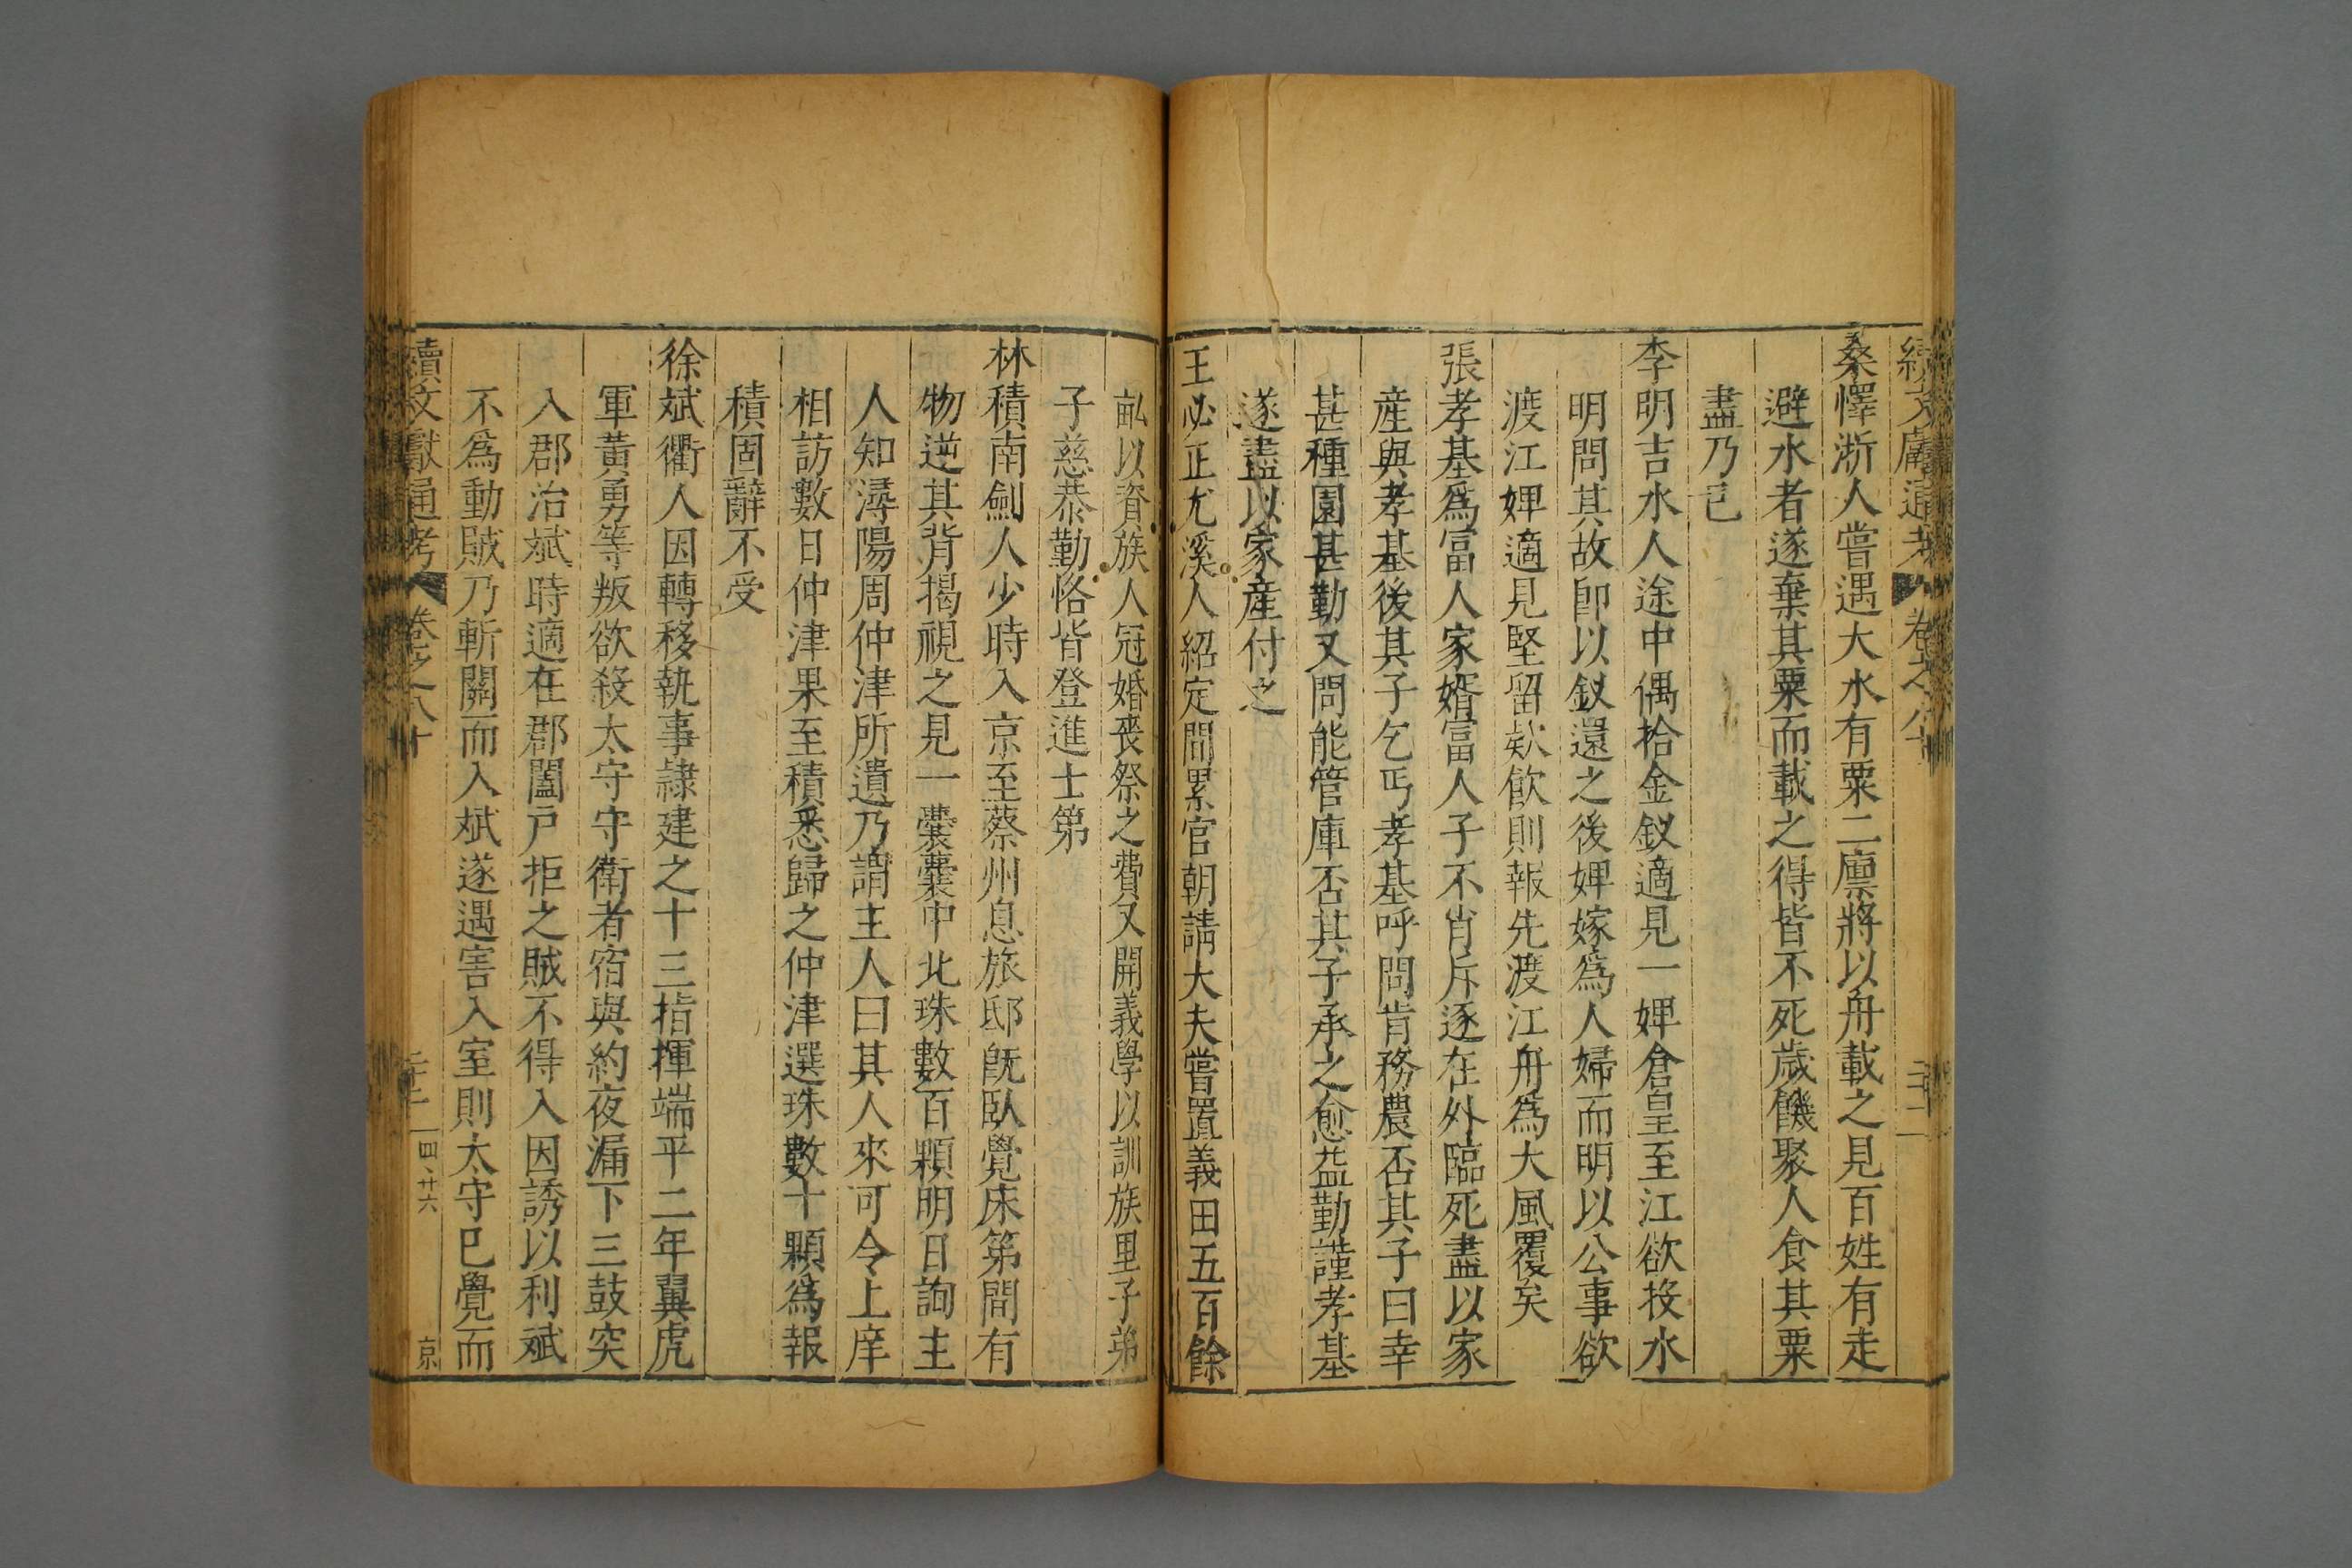 續文獻通考 卷之八十 二十二
桑懌浙人嘗遇大水有粟二廩將以舟載之見百姓有走
避水者遂棄其粟而載之得皆不死歲饑聚人食其粟
盡乃已
李明吉水人途中偶拾金釵適見一婢倉皇至江欲投水
明問其故卽以釵還之後婢嫁爲人婦而明以公事欲
渡江婢適見堅留欵飲則報先渡江舟爲大風覆矣
張孝基爲富人家婿富人子不肖斥逐在外臨死盡以家
産與孝基後其子乞丐孝基呼問肯務農否其子曰幸
甚種園甚勤又問能管庫否其子承之愈益勤謹孝基
遂盡以家産付之
王必正尤溪人紹定間累官朝請大夫嘗置義田五百餘
畝以資族人冠婚喪祭之費又開義學以訓族里子弟
子慈恭勤恪皆登進士第
林積南劍人少時入京至蔡州息旅邸旣臥覺床第間有
物逆其背揭視之見一囊囊中北珠數百顆明日詢主
人知潯陽周仲津所遺乃謂主人曰其人來可令上庠
相訪數日仲津果至積悉歸之仲津選珠數十顆爲報
積固辭不受
徐斌衢人因轉移執事隷建之十三指揮端平二年翼虎
軍黃勇等叛欲殺太守守衛者宿與約夜漏下三鼓突
入郡治斌時適在郡闔戶拒之賊不得入因誘以利斌
不爲動賊乃斬關而入斌遂遇害入室則太守已覺而
續文獻通考 卷之八十 二十二 四廿六 京